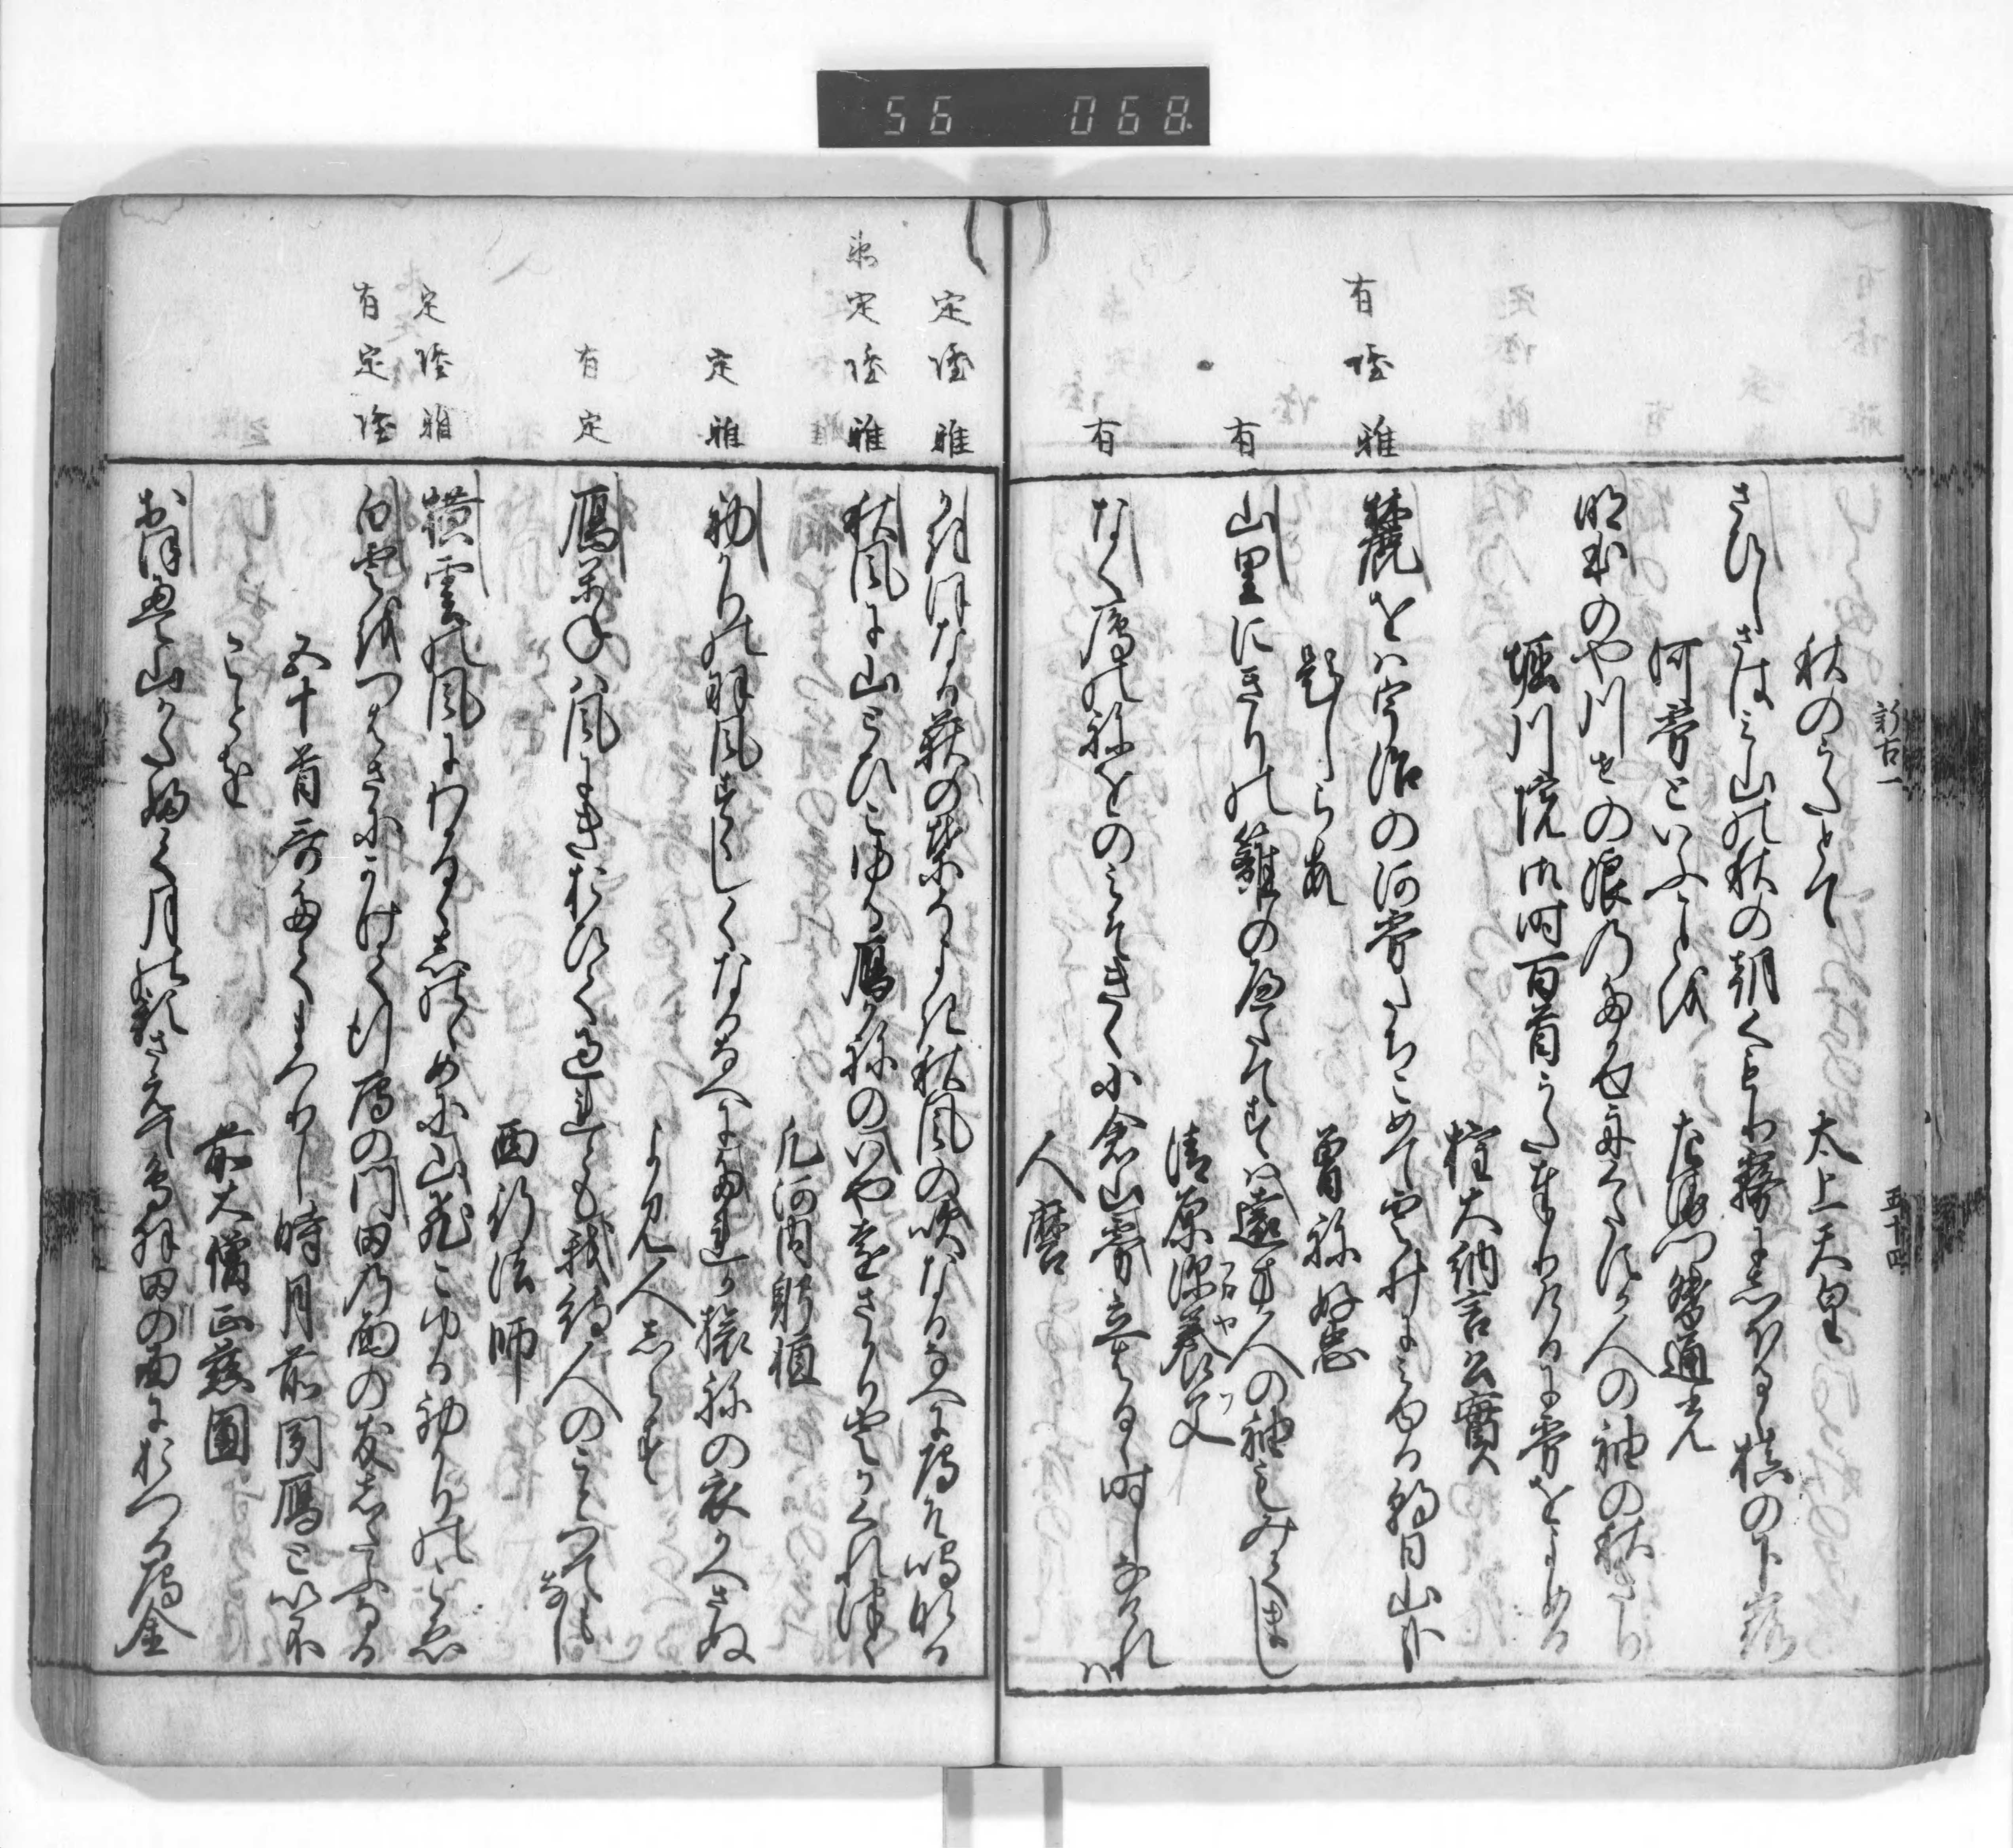 56 068
新古一
五十四
秋のうたとて 太上天皇
さひしさはみ山の秋の朝くもり霧にしほるゝ槙の下露
河霧といふ事を 左衛門督通光
明ほのや川せの浪のたかせ舟くたすか人の袖の秋きり
堀川院御時百首うたたてまつりけるに霧をよめる
権大納言公實
有 隆 雅
麓をは宇治の河霧たちこめて雲ゐにみゆる朝日山かな
題しらす 曾祢好忠
有
山里にきりの籬のへたてすは遠かた人の袖もみてまし
清原深養父
有
なく鴈のねをのみそきく小倉山霧立はるゝ時しなけれは
人麿
定 隆 雅
かきほなる荻の葉そよき秋風の吹なるなへに鴈そ鳴なる
定 隆 雅
秋風に山とひこゆる鴈かねのいや遠さかり雲かくれつゝ
凡河内躬恒
定 雅
初かりの羽風すゝしくなるなへにたれか旅ねの衣かへさぬ
よみ人しらす
有 定
鴈かねは風にきほひて過れとも我待人のことつてもなし
西行法師
定 隆 雅
横雲の風にわかるゝしのゝめに山飛こゆる初かりのこゑ
有 定 隆
白雲をつはさにかけて行鴈の門田の面の友したふなる
五十首哥たてまつりし時月前聞鴈といふ
ことを 前大僧正慈圓
おほえ山かたふく月の影さえて鳥羽田の面におつる鴈金